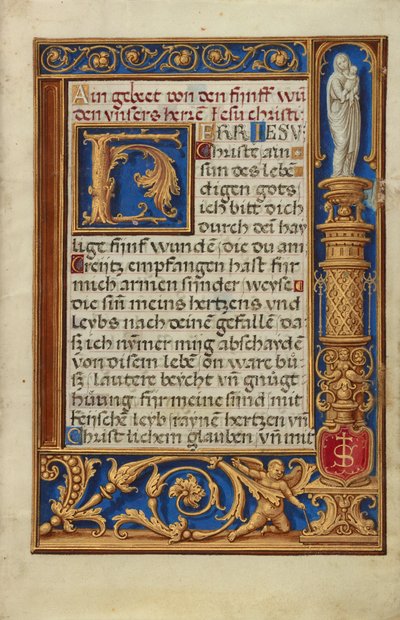 Ain gebeet von den fünff wun
den vnsers herrē Jesu christi.
HERR IESV
Christe ain
sun des lebē
digen gots
ich bitt dich
durch dein hay
lige fünf wunden, die du am
Creütz empfangen hast für
mich armen sünder, weyse
die sin meins hertzens vnd
leybs nach deinē gefallen, da
sz ich nymer ming abschayden
von disem lebē, on ware bů
sz, lautere beycht vn̄ gnůgt
hůung für meine sünd, mit
keüschem leyb, raynē hertzen vn̄
Christlichem glauben, vn̄ mit
IS